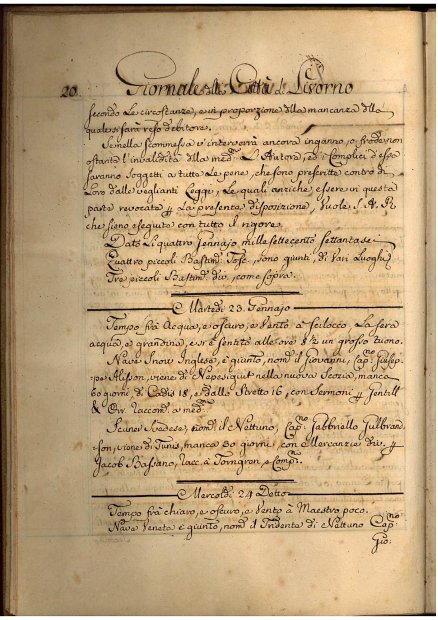 20. Giornale della Città di Livorno
secondo Le circostanze, e in proporzione della mancanza della
quale si sarà reso debitore.
Se nella scommessa v'interverrà ancora inganno, o frode non
ostante l'invalidità della med.ª L'Autore, ed i Complici d'essa
saranno Soggetti a tutte Le pene, che sono prescritte contro di
Loro dalle veglianti Leggi, Le quali anziché essere in questa
parte revocate La presente disposizione, Vuole S. A. R.
che sieno eseguite con tutto il rigore.
Dato Li quattro Gennajo mille settecento settantasei
Quattro piccoli Bastim.ti Tosc. sono giunti, di Vari Luoghi
Tre piccoli Bastim.ti div. come sopra.
Martedì 23. Gennajo
Tempo frà Acqua, e oscuro, e Vento a Scilocco, La sera
acqua, e grandina, e si è sentito alle ore 8 1/2 un grosso tuono.
Nave Snow Inglese, è giunto, nom.º il Giovanni, Cap.no Giusep-
pe Alisson, viene di Nepesiguit nella nuova Scozia, manca
60 giorni di Cadis 18, e dallo Stretto 16, con Sermoni Gentill
& Orr. raccom. a med.
Scuner Svedese, nom.º il Nettuno, Cap.no Gabbriello Gulbrand
son, viene di Tunis, manca 30 giorni con Mercanzie div.
Jacob Bassano, racc. à Torngron, e Comp.
Mercoldì 24 Detto
Tempo frà chiaro, e oscuro, e Vento à Maestro poco.
Nave Veneta è giunto, nom.º il Tridente di Nettuno Cap.no
Gio: